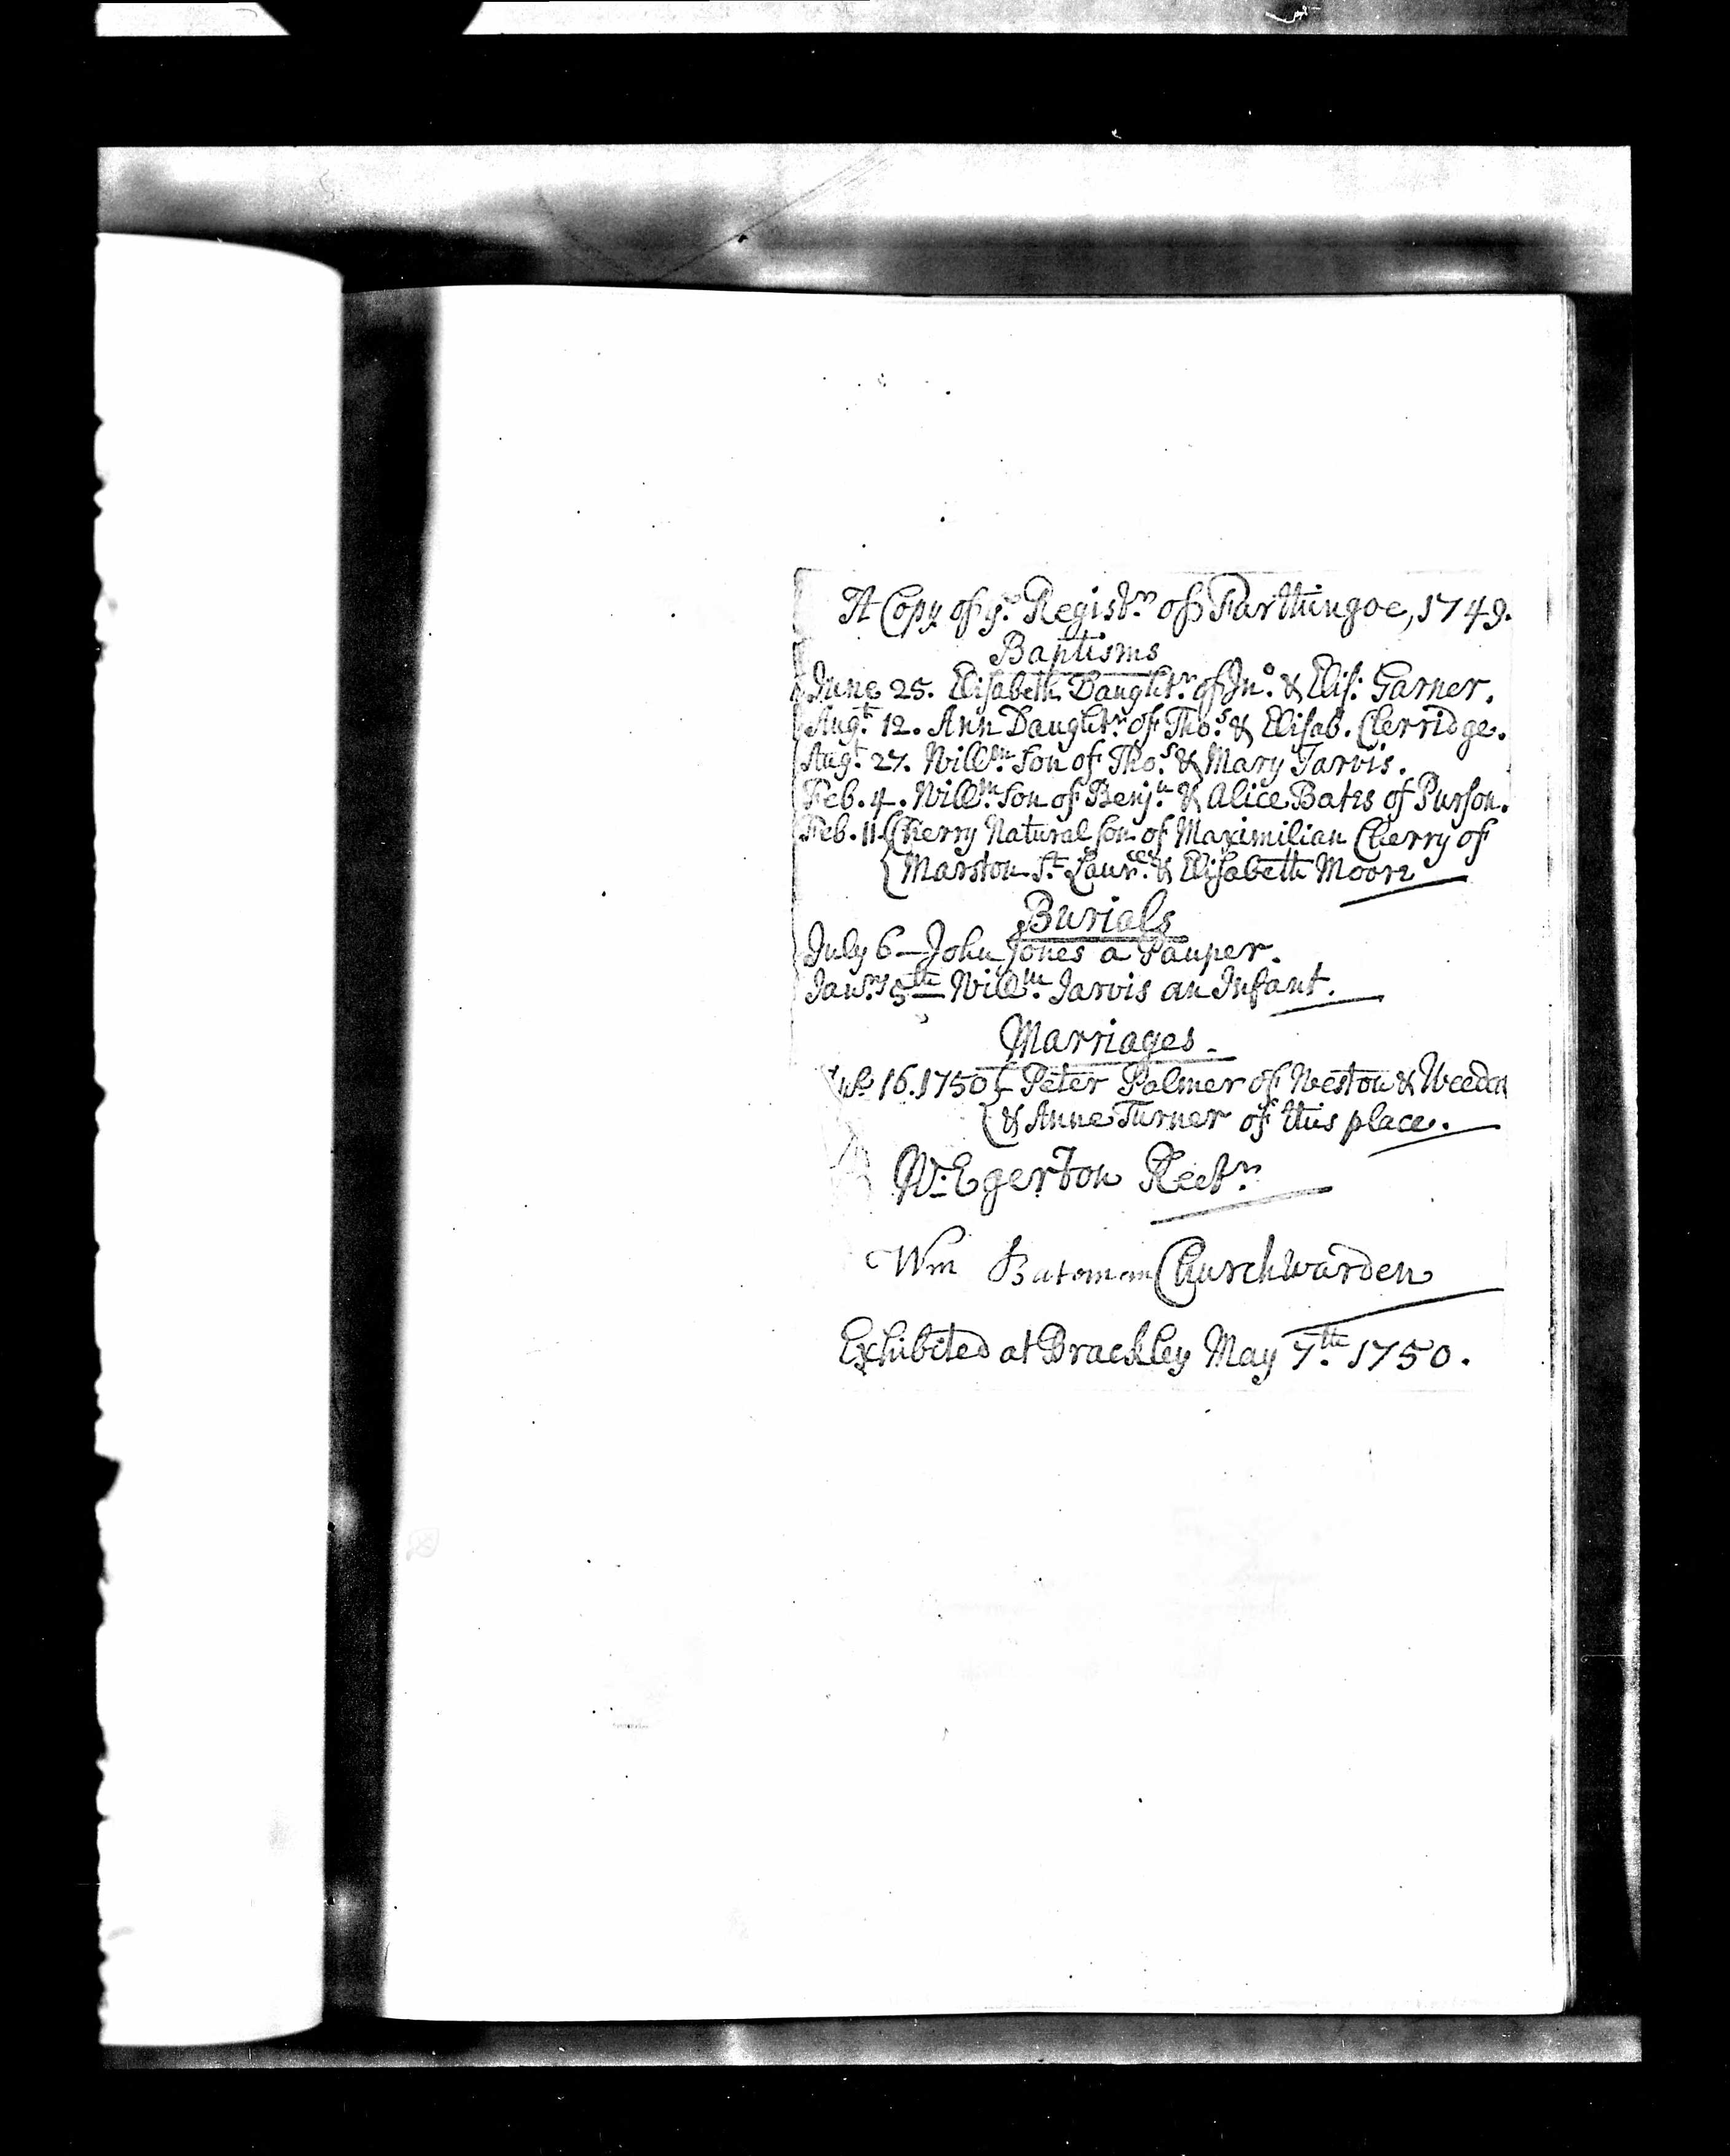 A Copy of yᵉ Registʳ of Farthingoe, 1749.
Baptisms
June 25. Elisabeth Daughtʳ of Jnᵒ & Elis: Garner.
Augᵗ 12. Ann Daughtʳ of Thoˢ & Elisab. Clerridge.
Augᵗ 27. Willᵐ Son of Thoˢ & Mary Jarvis.
Feb. 4. Willᵐ Son of Benjⁿ & Alice Bates of Purson.
Feb. 11 { Cherry Natural Son of Maximilian Cherry of
{ Marston Sᵗ Laurᶜᵉ & Elisabeth Moore
Burials
July 6 – John Jones a Pauper.
Janʳʸ 5ᵗʰ Willᵐ Jarvis an Infant.
Marriages
16. 1750 { Peter Palmer of Weston & Weedon
{ & Anne Turner of this place.
W. Egerton Rectʳ
Wm Bateman Churchwarden
Exhibited at Brackley May 7ᵗʰ 1750.